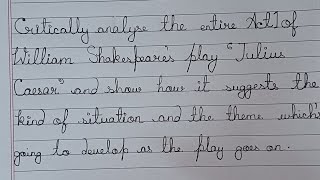 Critically analyse the entire Act I of
William Shakespeare's play "Julius
Caesar" and show how it suggests the
kind of situation and the theme which's
going to develop as the play goes on.